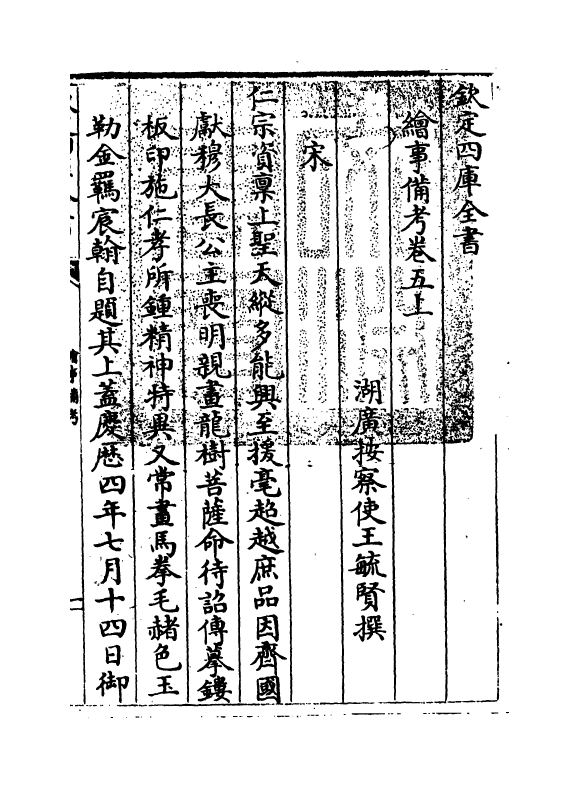 欽定四庫全書
繪事備考卷五上
湖廣按察使王毓賢撰
宋
仁宗資稟上聖天縱多能興至援毫超越庶品因齊國
獻穆大長公主喪明親畫龍樹菩薩命待詔傳摹鏤
板印施仁孝所鍾精神特異又常畫馬拳毛赭色玉
勒金羈宸翰自題其上蓋慶厯四年七月十四日御